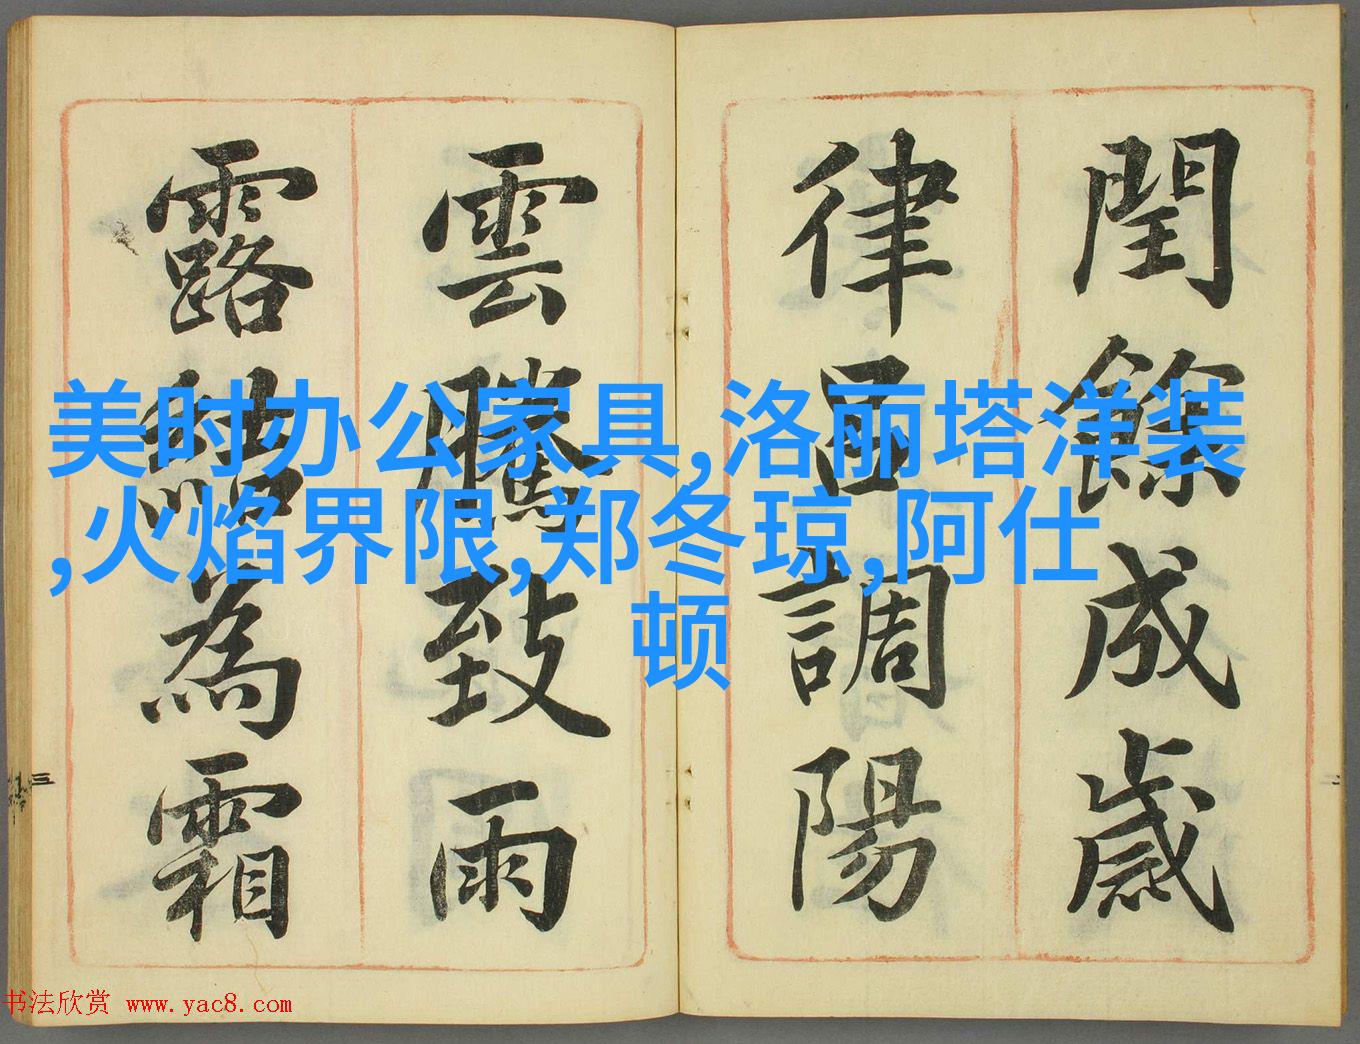 閏餘成歲
律吕調陽
雲騰致雨
露結為霜
美时办公家具,洛丽塔洋装
,火焰界限,郑冬琼,阿仕
顿
三
二
书法欣赏 www.yac8.com